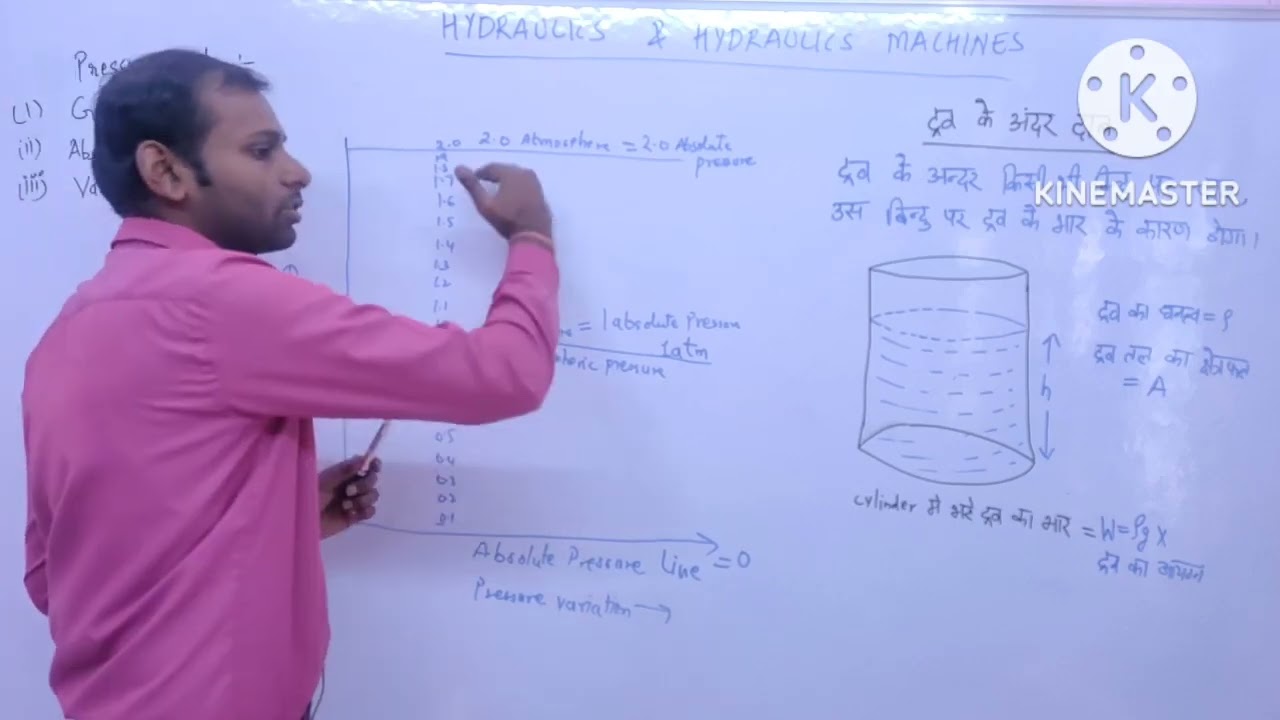 HYDRAULICS & HYDRAULICS MACHINES
(i)
(ii)
(iii)
2.0 2.0 Atmosphere = 2.0 Absolute
pressure
1.7
1.6
1.5
1.4
1.3
1.2
1.1
= 1 absolute Pressure
1atm
pressure
0.5
0.4
0.3
0.2
0.1
Absolute Pressure Line = 0
Pressure variation →
K
KINEMASTER
द्रव के अंदर
द्रव के अन्दर किसी भी
उस बिन्दु पर द्रव के भार के कारण होगा।
द्रव का घनत्व = ρ
द्रव तल का क्षेत्रफल
= A
h
cylinder मे भरे द्रव का भार = W = ρg x
द्रव का आयतन